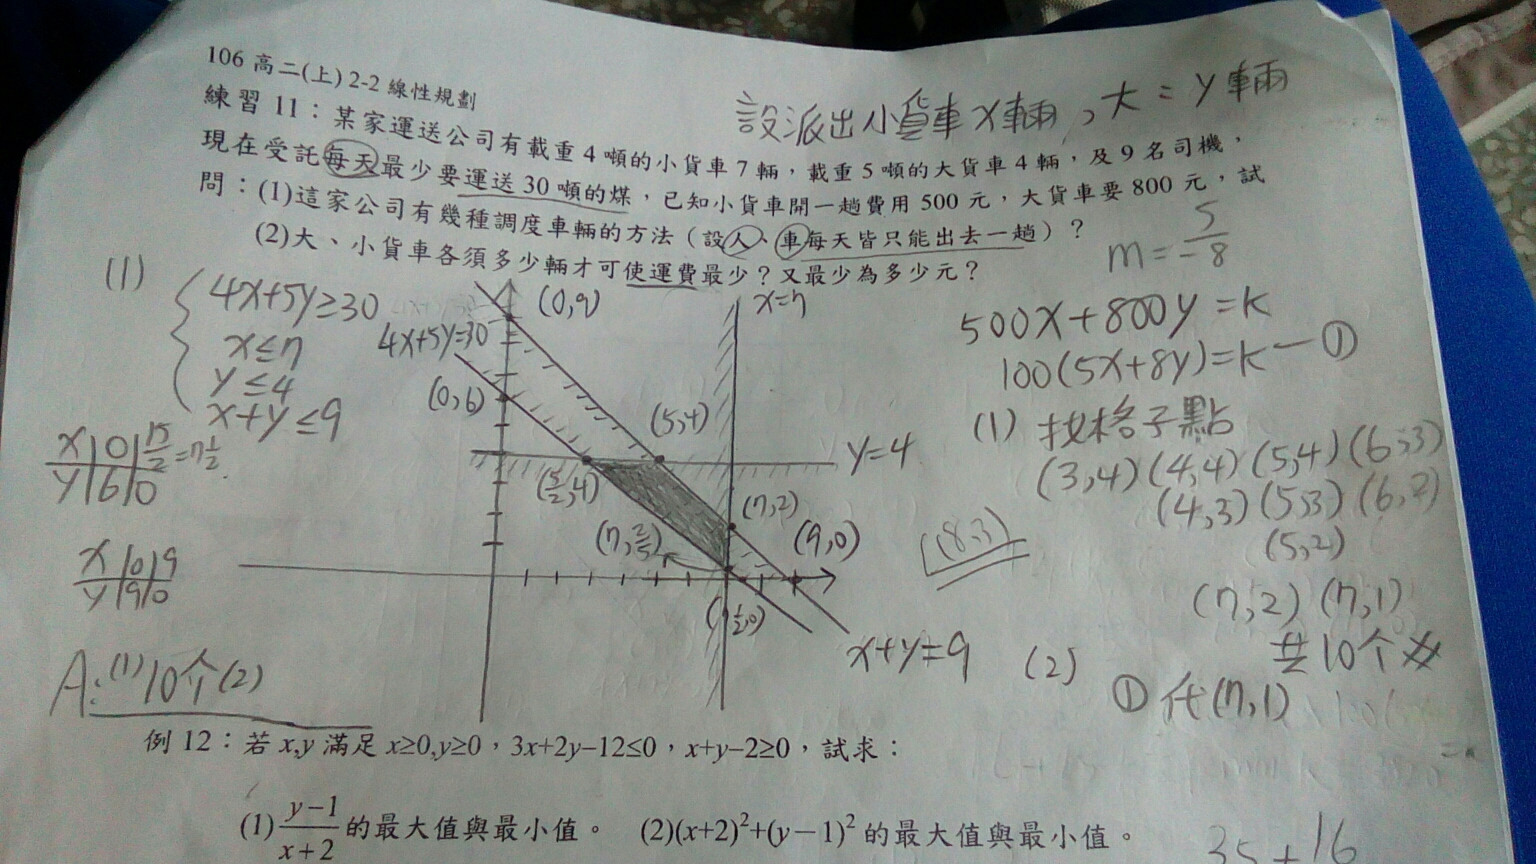 106 高二(上) 2-2 線性規劃
練習 11：某家運送公司有載重 4 噸的小貨車 7 輛，載重 5 噸的大貨車 4 輛，及 9 名司機，
現在受託每天最少要運送 30 噸的煤，已知小貨車開一趟費用 500 元，大貨車要 800 元，試
問：(1)這家公司有幾種調度車輛的方法（設人、車每天皆只能出去一趟）？
(2)大、小貨車各須多少輛才可使運費最少？又最少為多少元？
設派出小貨車 x 輛，大 = y 輛
m = 5/-8
(1)
4x+5y≥30
x≤7
y≤4
x+y≤9
x|0|15/2=7 1/2
y|6|0
x|0|9
y|9|0
(0,9)
x=7
4x+5y=30
(0,6)
(5,4)
y=4
(5/2,4)
(7,2)
(7,2/5)
(9,0)
(7 1/2,0)
x+y=9
500x+800y=k
100(5x+8y)=k—①
(1) 找格子點
(3,4)(4,4)(5,4)(6,3)
(4,3)(5,3)(6,2)
(5,2)
(7,2)(7,1)
共10个#
(8,3)
(2)
①代(7,1)
A:(1)10个(2)
例 12：若 x,y 滿足 x≥0,y≥0，3x+2y−12≤0，x+y−2≥0，試求：
(1) y−1/x+2 的最大值與最小值。 (2)(x+2)²+(y−1)² 的最大值與最小值。
35+16